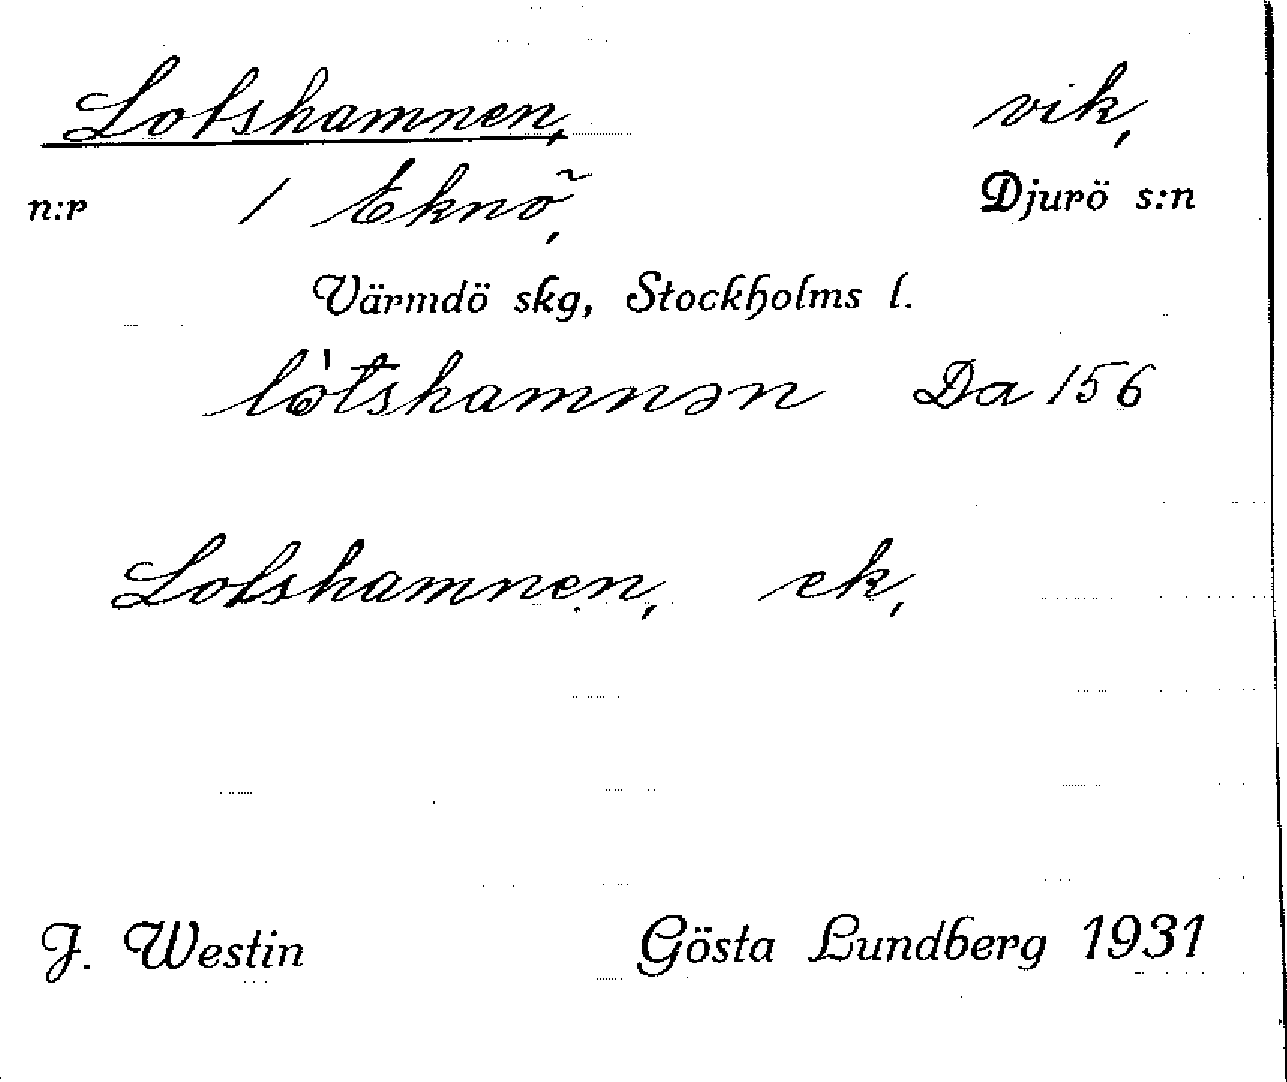 Lotshamnen, vik,
n:r 1 Eknö, Djurö s:n
Värmdö skg, Stockholms l.
lòtshamnən Da 156
Lotshamnen, ek,
J. Westin Gösta Lundberg 1931